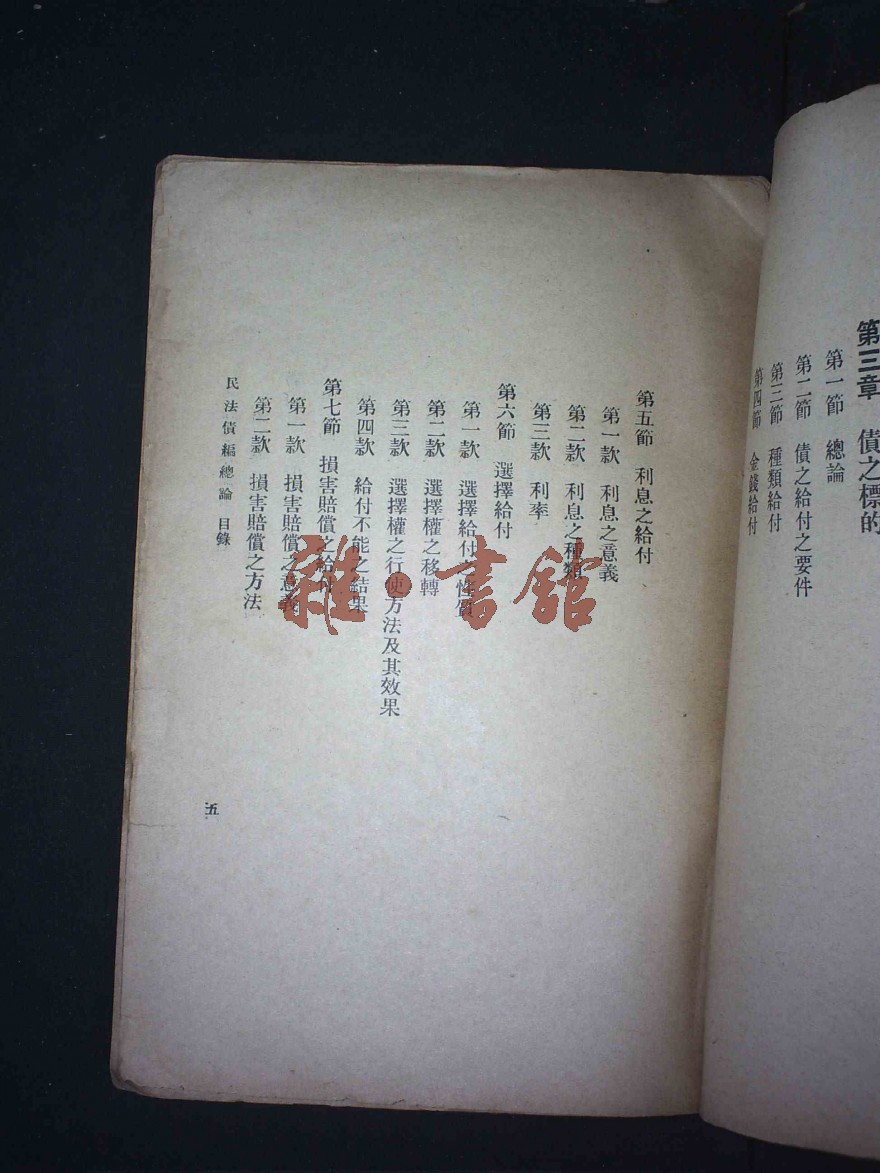 第三章 債之標的
第一節 總論
第二節 債之給付之要件
第三節 種類給付
第四節 金錢給付
第五節 利息之給付
第一款 利息之意義
第二款 利息之種類
第三款 利率
第六節 選擇給付
第一款 選擇給付之性質
第二款 選擇權之移轉
第三款 選擇權之行使方法及其效果
第四款 給付不能之結果
第七節 損害賠償之給付
第一款 損害賠償之意義
第二款 損害賠償之方法
民法債編總論 目錄
五
雜·書館